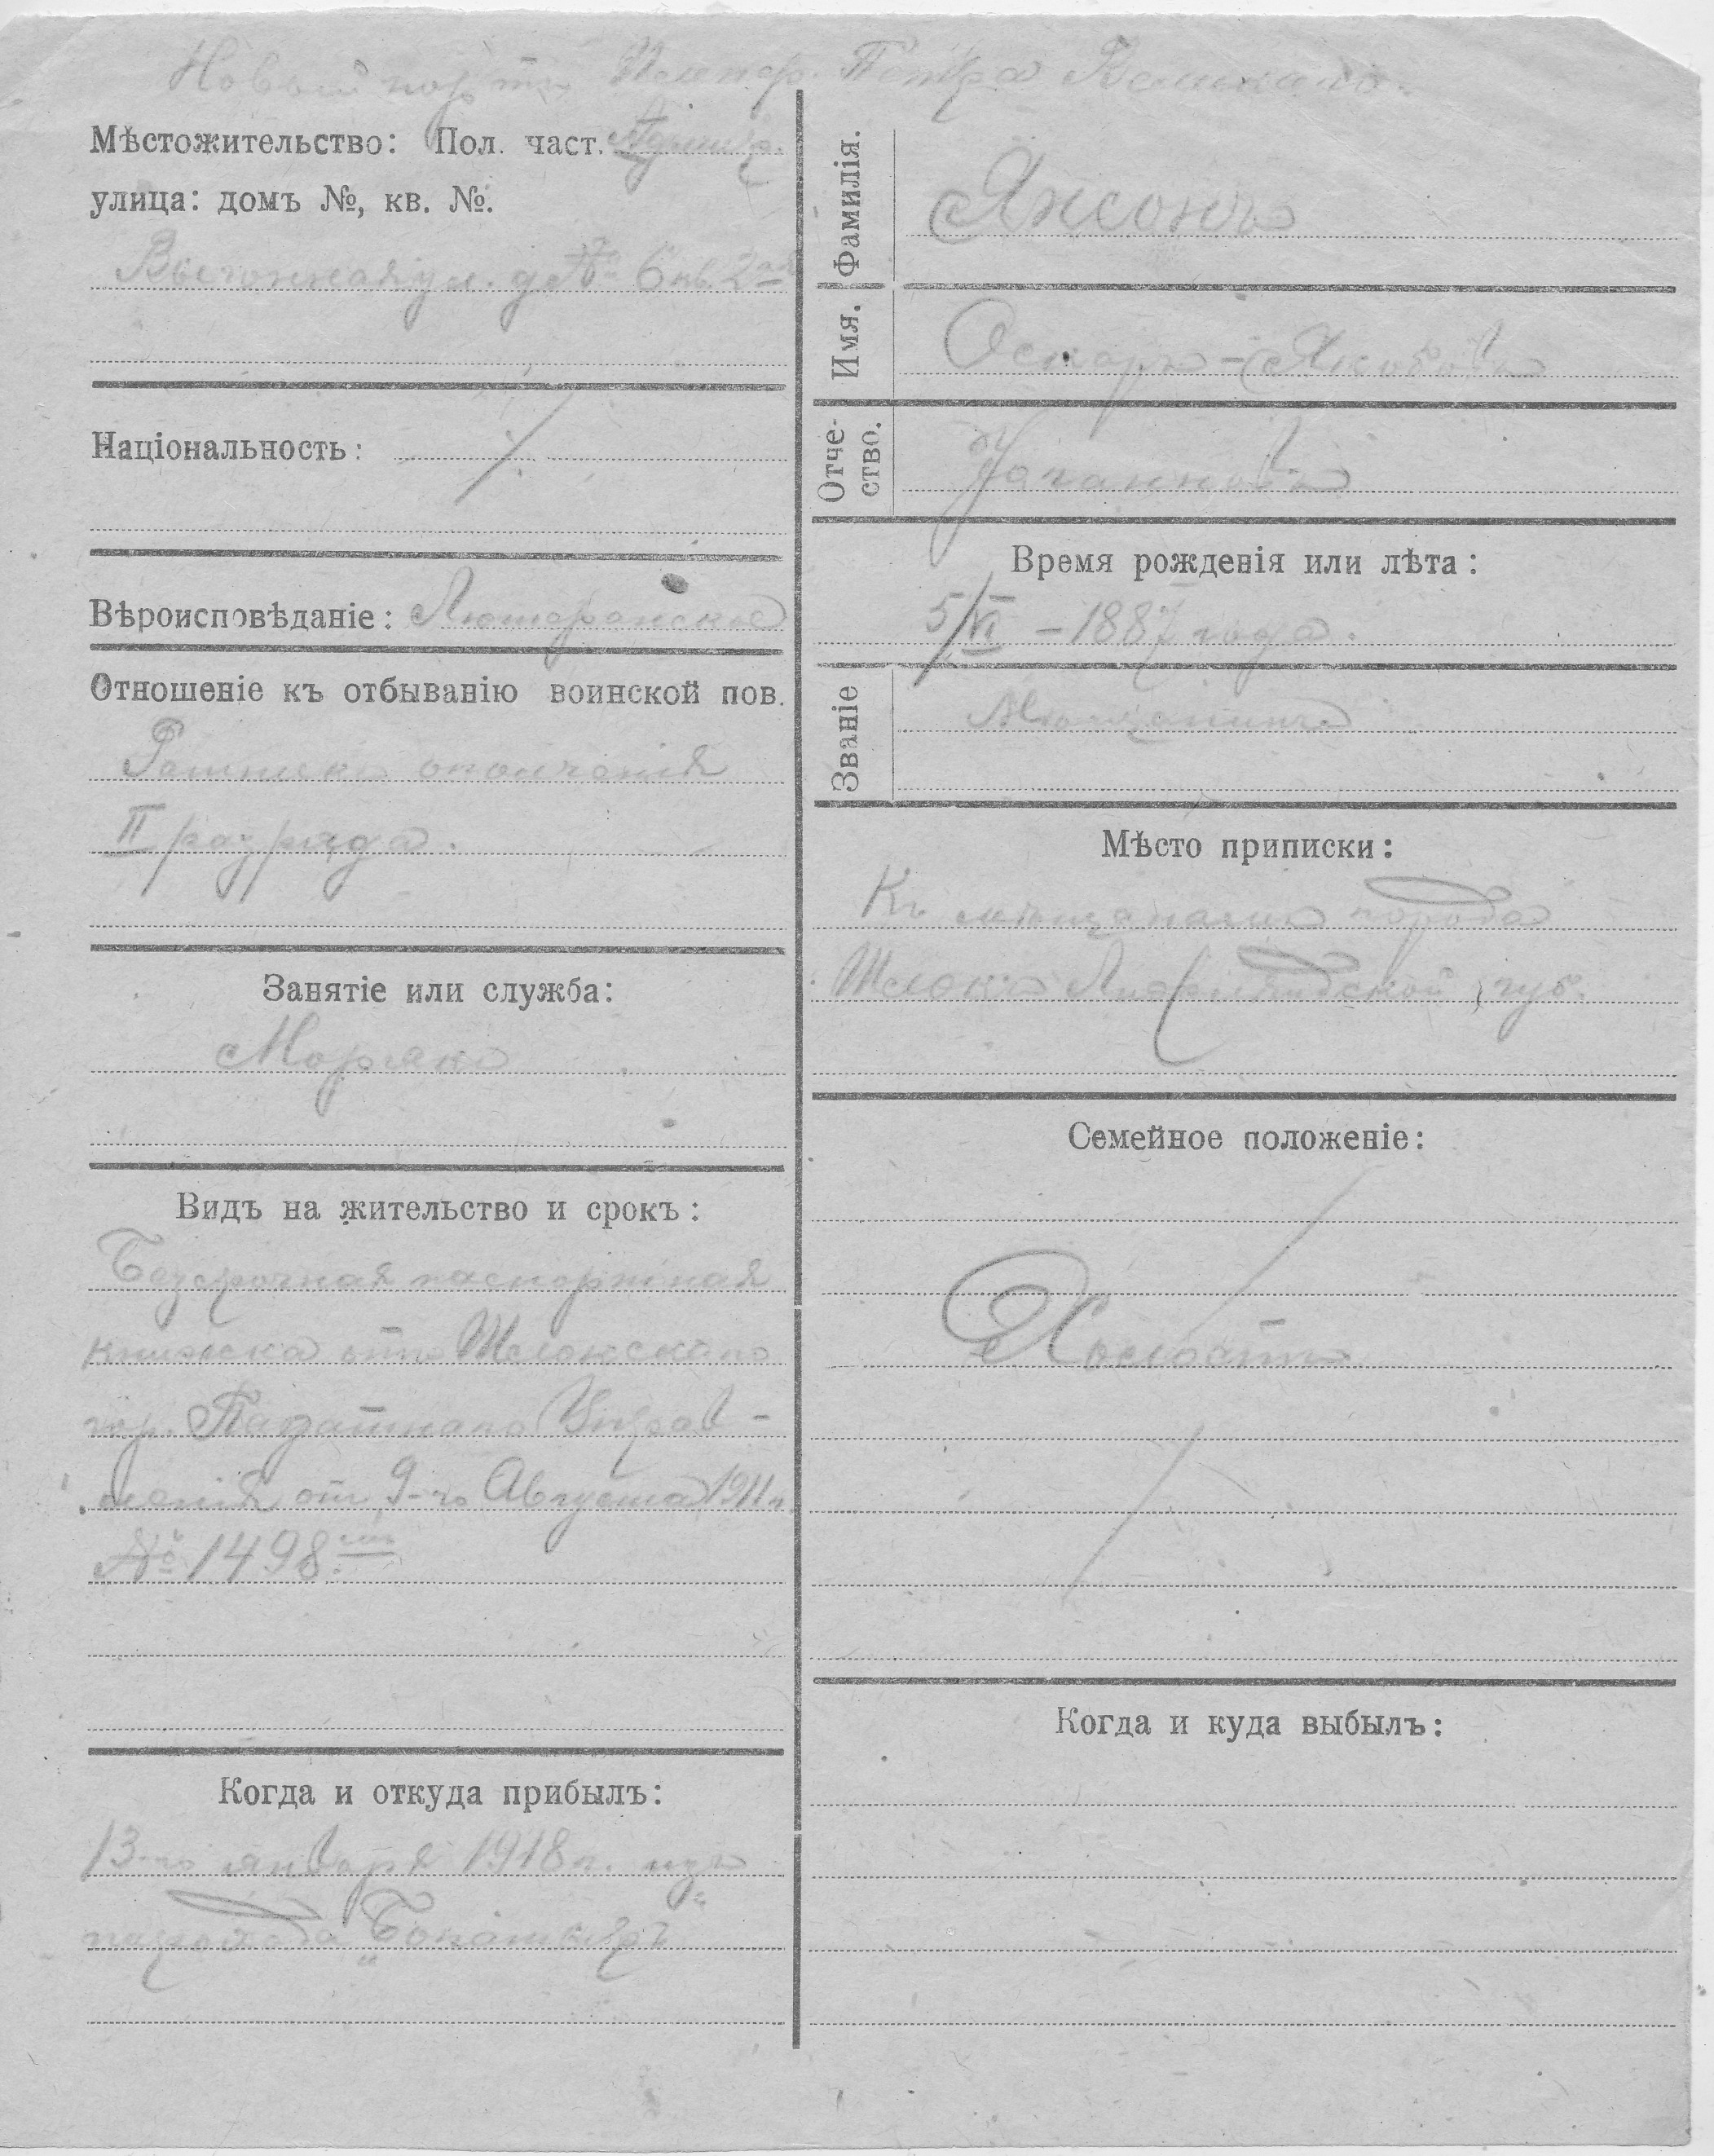 Новый портъ Импер. Петра Великаго.
Мѣстожительство: Пол. част.
улица: домъ №, кв. №.
ул. д № 6 кв. 2
Національность:
Вѣроисповѣданіе: Лютеранское
Отношеніе къ отбыванію воинской пов.
Ратникъ ополченія
II разряда.
Занятіе или служба:
Морякъ
Видъ на жительство и срокъ:
Безсрочная паспортная
книжка отъ Шлокскаго
гор. Податнаго Управ-
ленія от 9-го Августа 1911 г.
№ 1498
Когда и откуда прибылъ:
13-го января 1918 г. изъ
парохода
Фамилія. Янсонъ
Имя. Оскаръ-Якобъ
Отчество. Югановъ
Время рожденія или лѣта:
5/VI - 1887 года.
Званіе Мѣщанинъ
Мѣсто приписки:
Къ мѣщанамъ города
Шлока Лифляндской губ.
Семейное положеніе:
Холостъ
Когда и куда выбылъ: